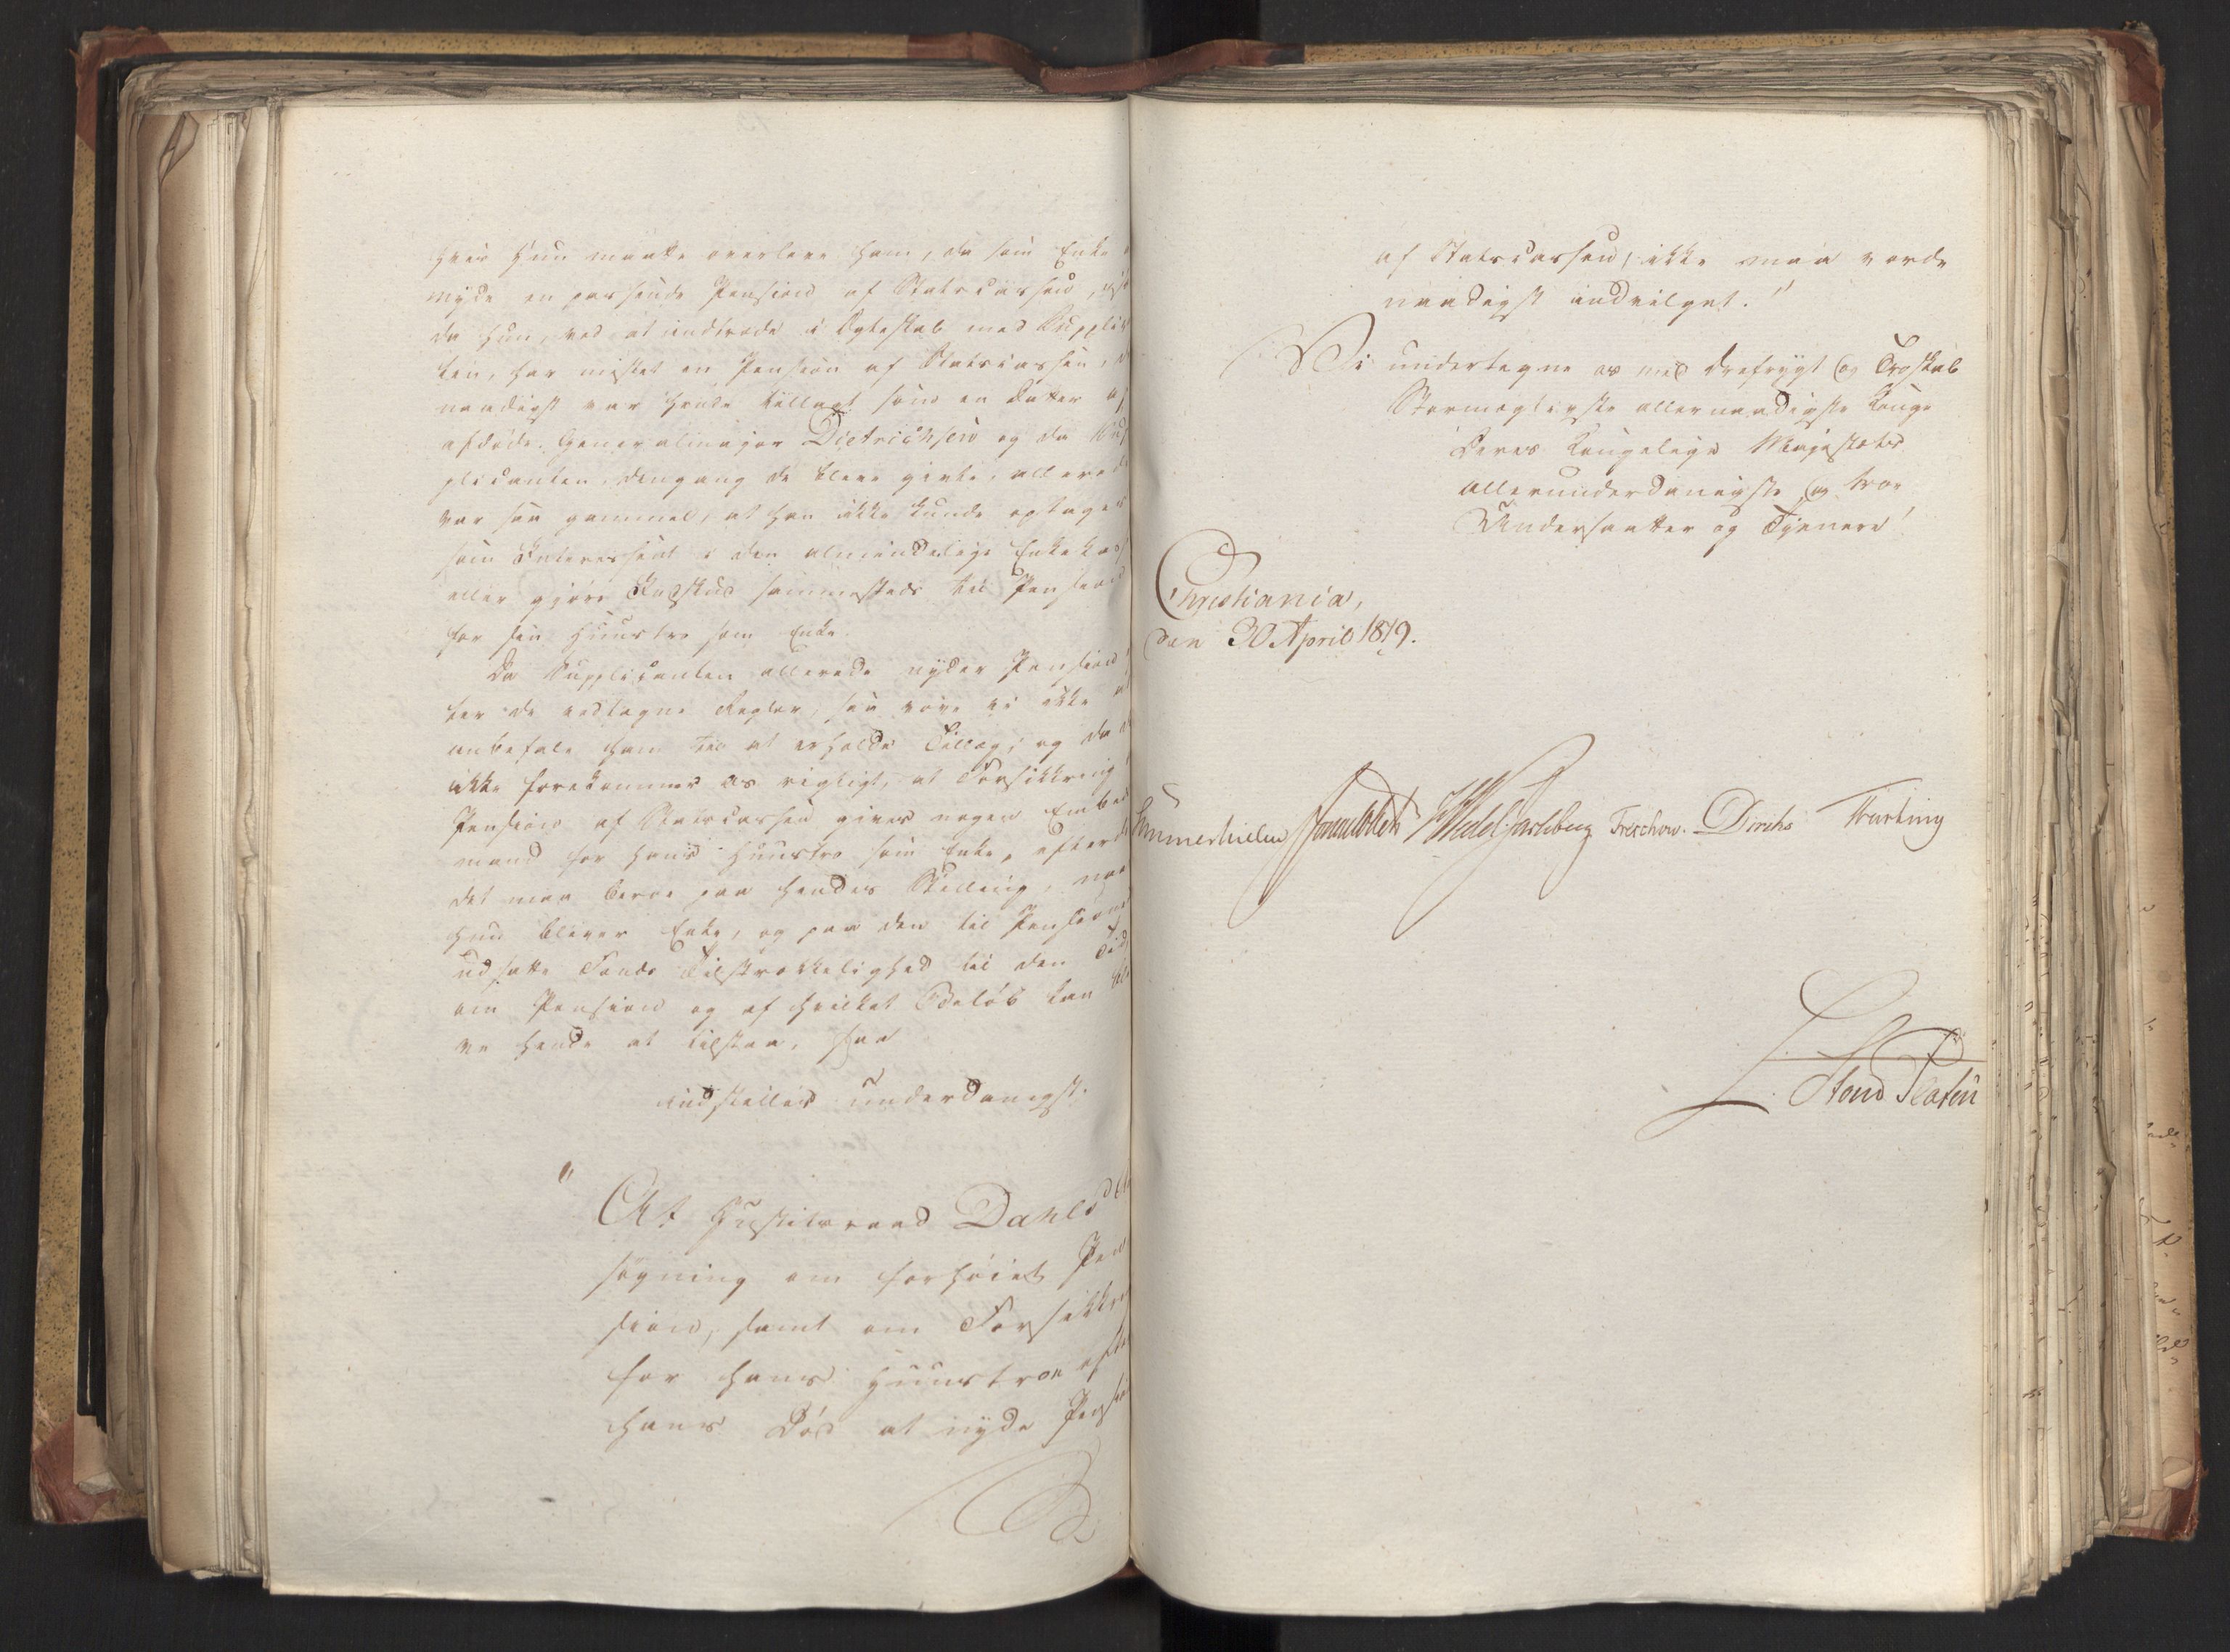 hvis hun maatte overleve ham, da som Enke
nyde en passende Pension af Statscassen,
da hun, ved at indtræde i Ægteskab med Supplican
ten, har mistet en Pension af Statscassen,
naadigst var hende tillagt som en Datter af
afdøde Generalmajor Dietrichsen og da Sup
plicanten, dengang de bleve givte, allerede
var saa gammel, at han ikke kunde optages
som Interessent i den almindelige Enkekasse
eller gjøre Indskud sammesteds til Pension
for sin Huustro som Enke.
Da Supplicanten allerede nyder Pension
ter de vedtagne Regler, saa vove vi ikke at
anbefale ham til at erholde Tillæg; og da det
ikke forekommer os rigtigt, at Forsikkring
Pension af Statscassen gives nogen Embeds
mand for hans Huustro som Enke, efterdi
det maa beroe paa hendes Stilling, naar
hun bliver Enke, og paa den til Pensioner
udsatte Fonds Tilstrækkelighed til den Tid
om Pension og af hvilket Beløb kan bli
ve hende at tilstaae, saa
indstilles underdanigst:
" At Justitsraad Dahls An
søgning om forhøiet Pen
sion, samt om Forsikkring
for hans Huustroe efter
hans Død at nyde Pension
af Statscassen, ikke maa vorde
naadigst indvilget."
Vi undertegne os med Ærefrygt og Troskab
Stormægtigste allernaadigste Konge
Deres Kongelige Majestæts
allerunderdanigste og troe
Undersaatter og Tjenere!
Christiania,
den 30 April 1819.
Sommerhielm JCollett HWedel Jarlsberg Treschow. Diriks Krafting
Hans Platen